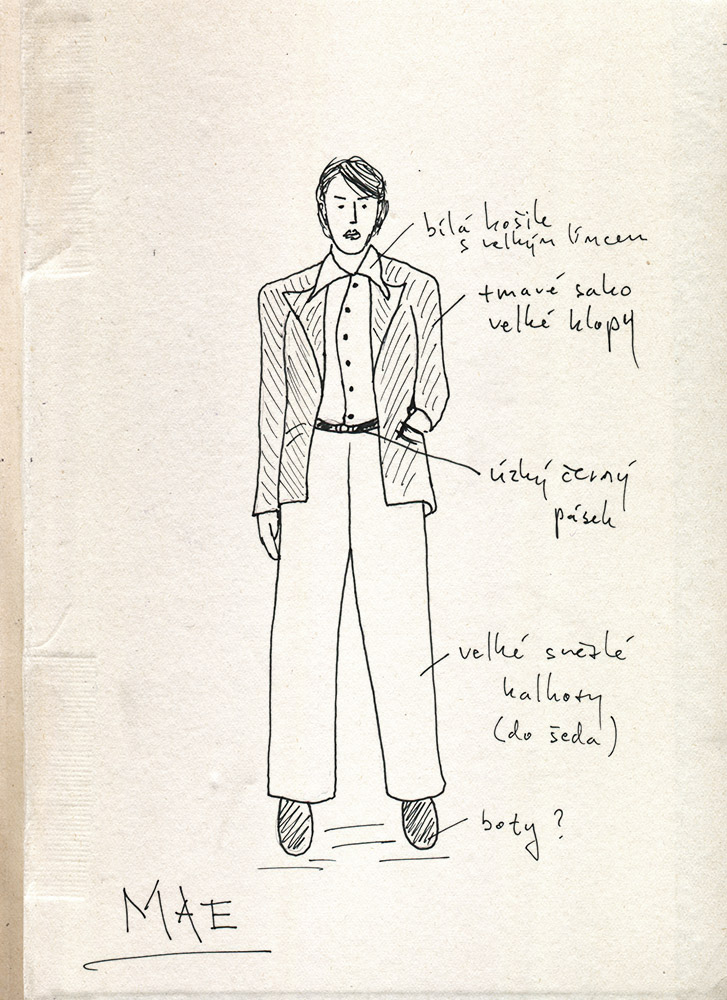 bílá košile
s velkým límcem
tmavé sako
velké klopy
úzký černý
pásek
velké světlé
kalhoty
(do šeda)
boty ?
MAE